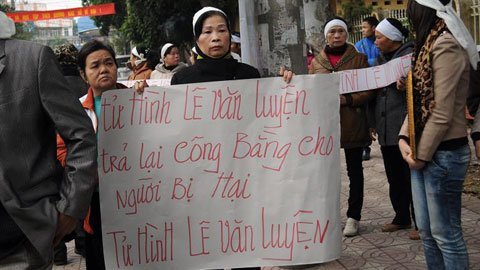 Tử Hình LÊ Văn Luyện
trả lại Công Bằng cho
Người Bị Hại
Tử Hình LÊ Văn Luyện